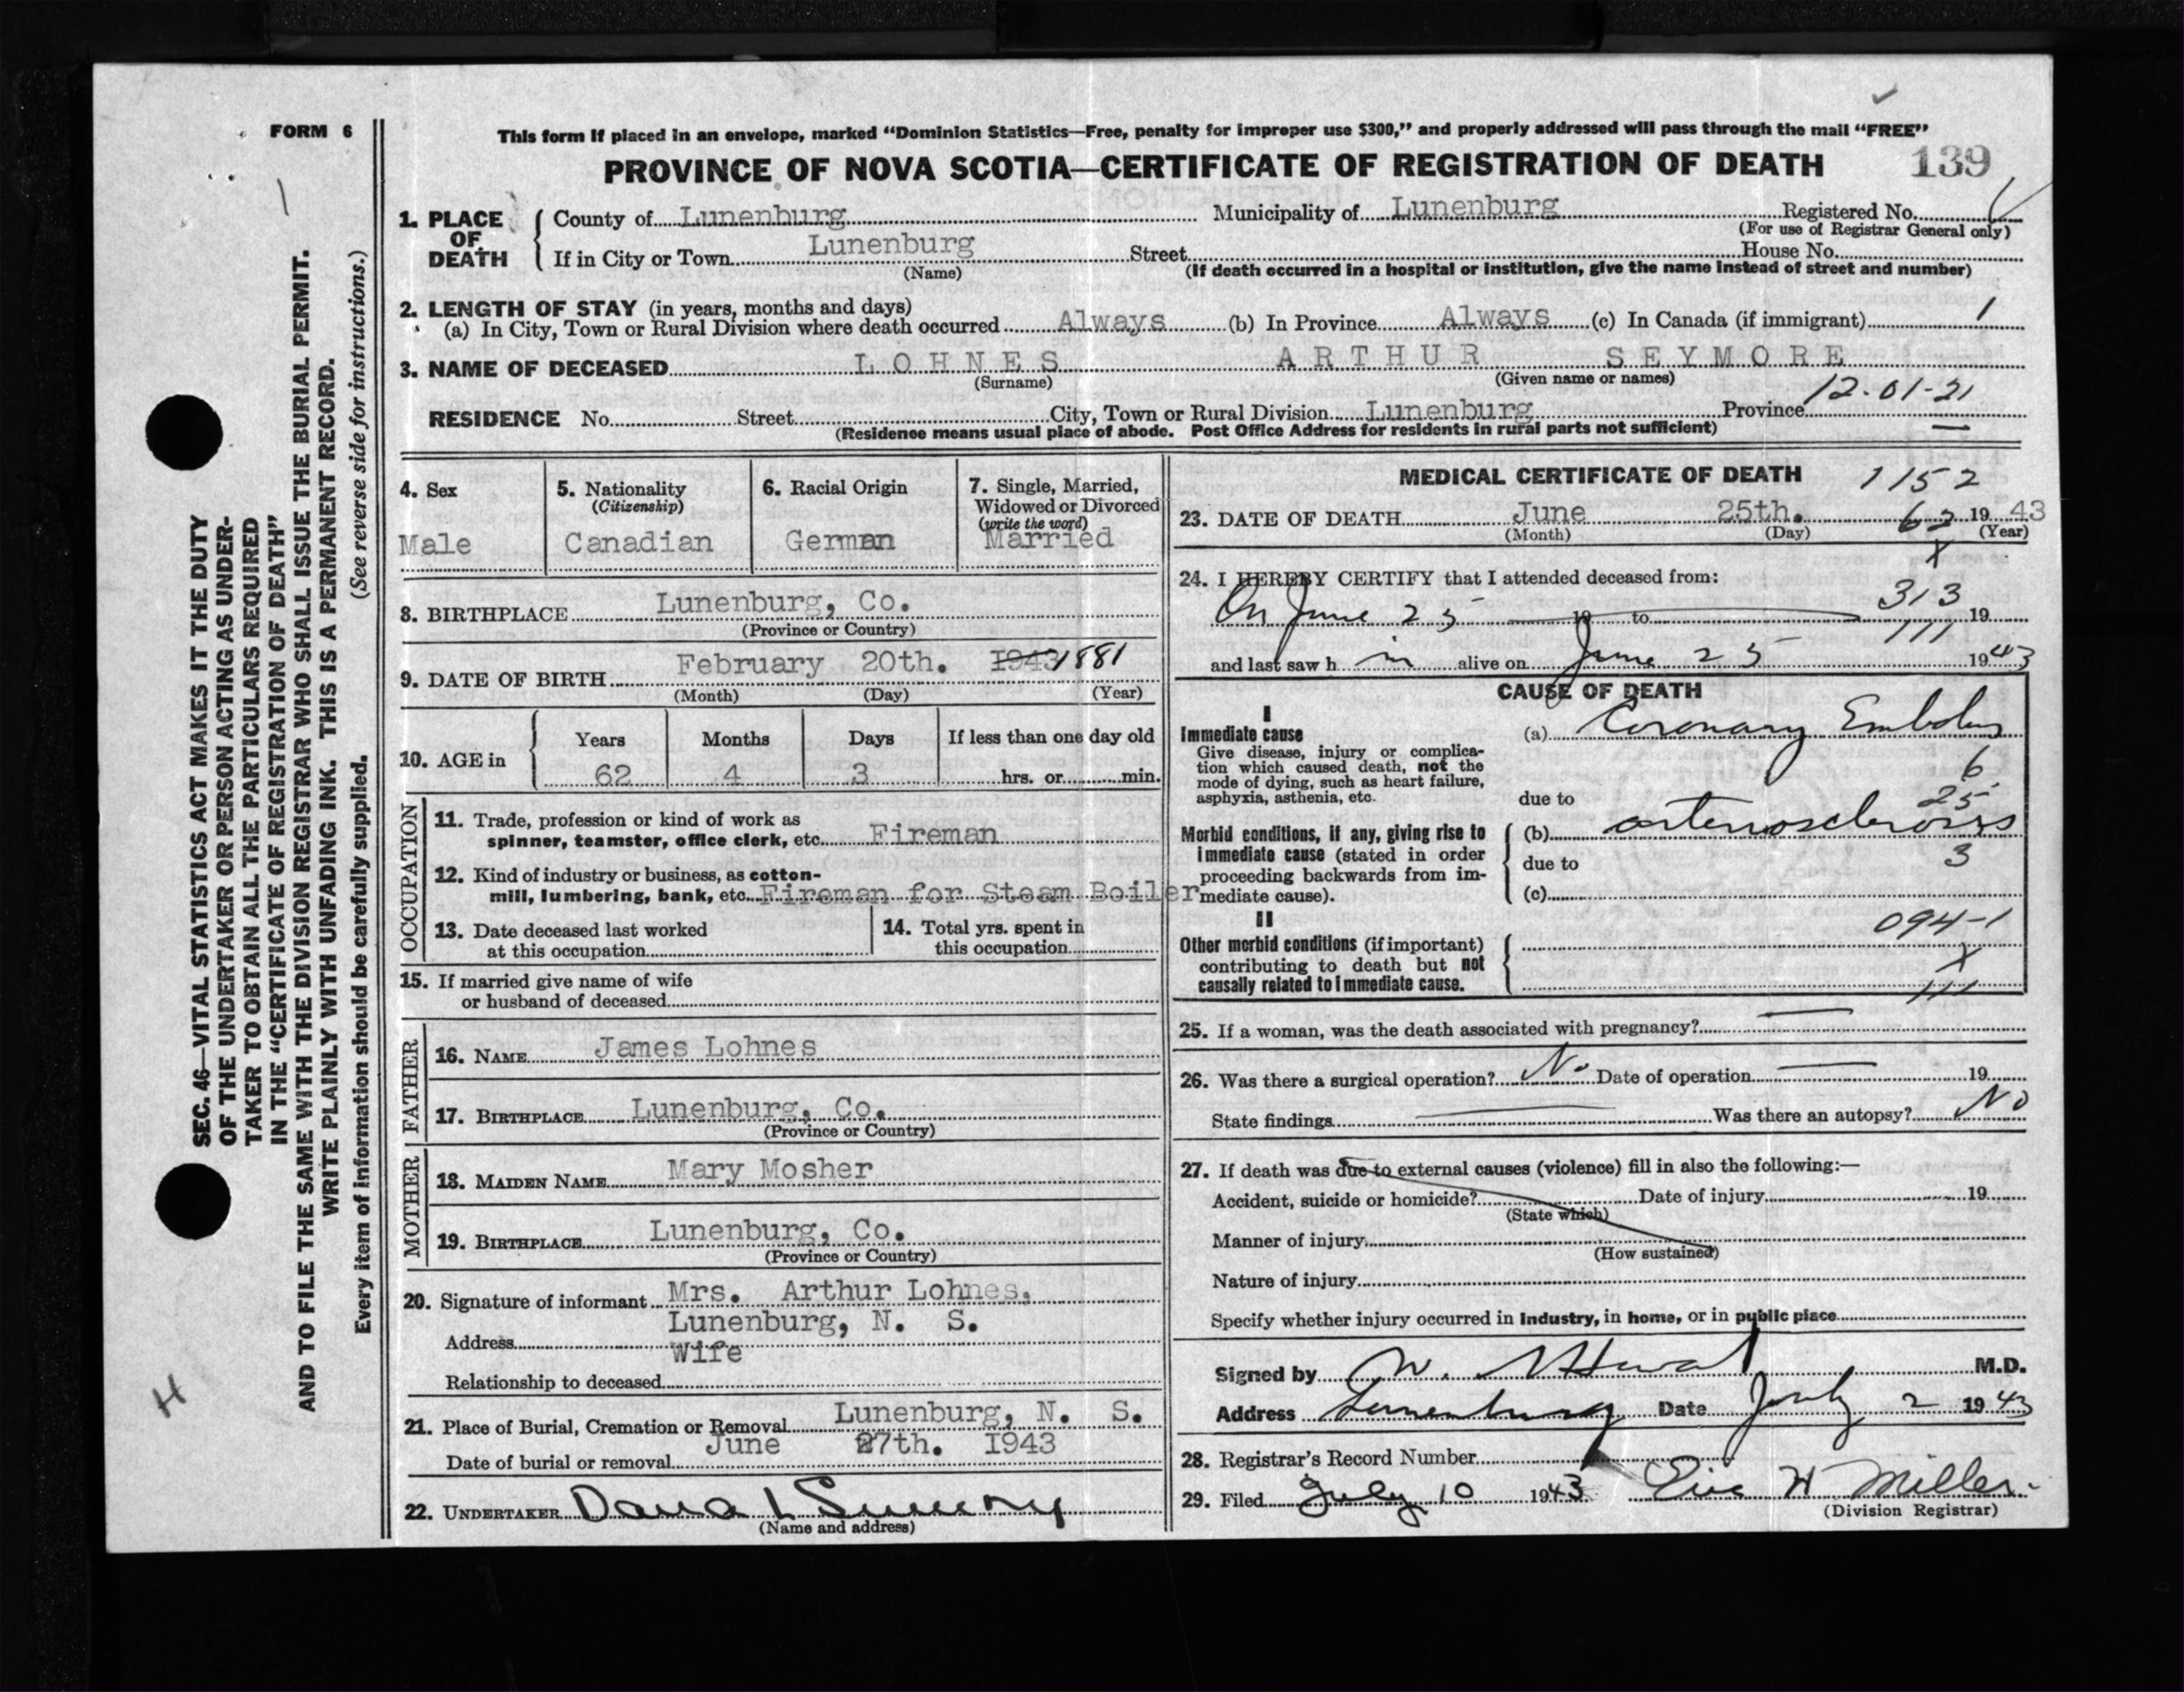 FORM 6
This form if placed in an envelope, marked “Dominion Statistics—Free, penalty for improper use $300,” and properly addressed will pass through the mail “FREE”
PROVINCE OF NOVA SCOTIA—CERTIFICATE OF REGISTRATION OF DEATH 139
1. PLACE OF DEATH County of Lunenburg Municipality of Lunenburg Registered No.
(For use of Registrar General only)
If in City or Town Lunenburg Street House No.
(Name) (If death occurred in a hospital or institution, give the name instead of street and number)
2. LENGTH OF STAY (in years, months and days)
(a) In City, Town or Rural Division where death occurred Always (b) In Province Always (c) In Canada (if immigrant) 1
3. NAME OF DECEASED LOHNES ARTHUR SEYMORE
(Surname) (Given name or names)
12-01-21
RESIDENCE No. Street City, Town or Rural Division Lunenburg Province
(Residence means usual place of abode. Post Office Address for residents in rural parts not sufficient)
4. Sex
Male
5. Nationality
(Citizenship)
Canadian
6. Racial Origin
German
7. Single, Married,
Widowed or Divorced
(write the word)
Married
8. BIRTHPLACE Lunenburg, Co.
(Province or Country)
9. DATE OF BIRTH February 20th. 1943 1881
(Month) (Day) (Year)
10. AGE in Years Months Days If less than one day old
62 4 3 hrs. or min.
OCCUPATION
11. Trade, profession or kind of work as
spinner, teamster, office clerk, etc. Fireman
12. Kind of industry or business, as cotton-
mill, lumbering, bank, etc. Fireman for Steam Boiler
13. Date deceased last worked
at this occupation
14. Total yrs. spent in
this occupation
15. If married give name of wife
or husband of deceased
FATHER
16. NAME James Lohnes
17. BIRTHPLACE Lunenburg, Co.
(Province or Country)
MOTHER
18. MAIDEN NAME Mary Mosher
19. BIRTHPLACE Lunenburg, Co.
(Province or Country)
20. Signature of informant Mrs. Arthur Lohnes,
Lunenburg, N. S.
Address
Wife
Relationship to deceased
21. Place of Burial, Cremation or Removal Lunenburg, N. S.
June 27th. 1943
Date of burial or removal
22. UNDERTAKER Dana L Sweeny
(Name and address)
MEDICAL CERTIFICATE OF DEATH 1152
23. DATE OF DEATH June 25th. 62 19 43
(Month) (Day) (Year)
X
24. I HEREBY CERTIFY that I attended deceased from:
313
On June 25 19 to 19
111
and last saw h im alive on June 25 1943
CAUSE OF DEATH
I
Immediate cause
Give disease, injury or complica-
tion which caused death, not the
mode of dying, such as heart failure,
asphyxia, asthenia, etc.
(a) Coronary Embolus
6
due to
25
Morbid conditions, if any, giving rise to
immediate cause (stated in order
proceeding backwards from im-
mediate cause).
(b) arteriosclerosis
due to 3
(c)
II
Other morbid conditions (if important)
contributing to death but not
causally related to immediate cause.
094-1
X
111
25. If a woman, was the death associated with pregnancy?
26. Was there a surgical operation? No Date of operation 19
State findings Was there an autopsy? No
27. If death was due to external causes (violence) fill in also the following:—
Accident, suicide or homicide? Date of injury 19
(State which)
Manner of injury
(How sustained)
Nature of injury
Specify whether injury occurred in industry, in home, or in public place
Signed by W. M.D.
Address Lunenburg Date July 2 1943
28. Registrar's Record Number
29. Filed July 10 1943 Eric H Miller.
(Division Registrar)
SEC. 46—VITAL STATISTICS ACT MAKES IT THE DUTY
OF THE UNDERTAKER OR PERSON ACTING AS UNDER-
TAKER TO OBTAIN ALL THE PARTICULARS REQUIRED
IN THE “CERTIFICATE OF REGISTRATION OF DEATH”
AND TO FILE THE SAME WITH THE DIVISION REGISTRAR WHO SHALL ISSUE THE BURIAL PERMIT.
WRITE PLAINLY WITH UNFADING INK. THIS IS A PERMANENT RECORD.
Every item of information should be carefully supplied. (See reverse side for instructions.)
H